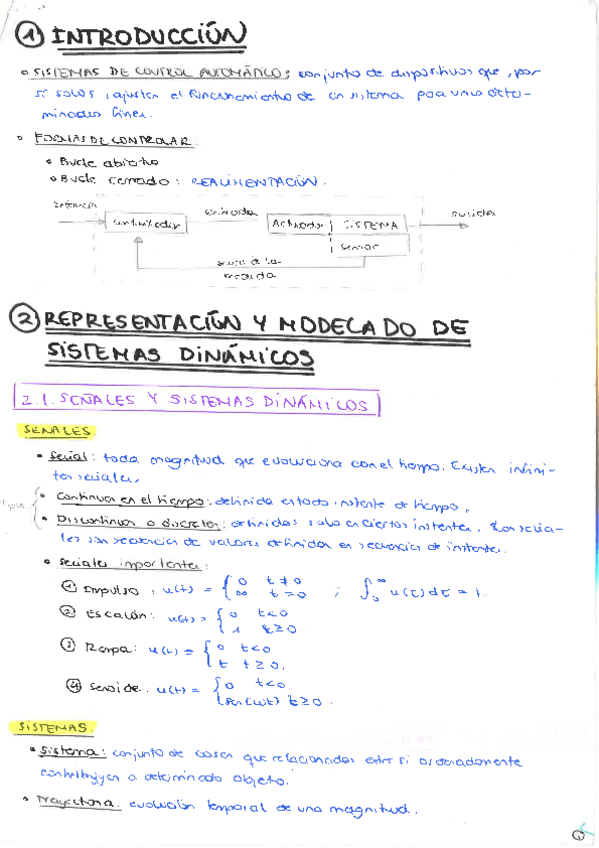 ① INTRODUCCIÓN
SISTEMAS DE CONTROL AUTOMÁTICO: conjunto de dispositivos que, por
sí solos, ajustan el funcionamiento de un sistema para unos deter-
minados fines.
FORMAS DE CONTROLAR:
Bucle abierto
Bucle cerrado: REALIMENTACIÓN.
Referencia entrada Salida
Controlador Actuador SISTEMA
Sensor
② REPRESENTACIÓN Y MODELADO DE
SISTEMAS DINÁMICOS
2.1. SEÑALES Y SISTEMAS DINÁMICOS
SEÑALES
Señal: toda magnitud que evoluciona con el tiempo. Existen infini-
tas señales.
Continuas en el tiempo: definida en todo instante de tiempo.
Discontinuas o discretas: definidas solo en ciertos instantes.
les son secuencias de valores definidos en secuencia de instantes.
Señales importantes:
① Impulso: u(t) = { 0 t ≠ 0
∞ t = 0 ; ∫ u(τ)dτ = 1.
② Escalón: u(t) = { 0 t<0
1 t≥0
③ Rampa: u(t) = { 0 t<0
t t≥0.
④ Senoide: u(t) = { 0 t<0
sen(ωt) t≥0.
SISTEMAS.
Sistema: conjunto de cosas que relacionadas entre sí ordenadamente
contribuyen a determinado objeto.
Trayectoria: evolución temporal de una magnitud.
①